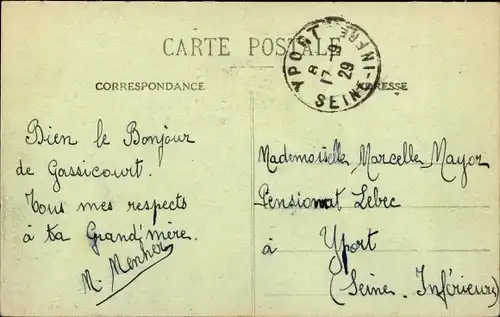 CARTE POSTALE
YPORT SEINE-INFRE
8-9
17
29
CORRESPONDANCE
ADRESSE
Bien le Bonjour
de Gassicourt.
Tous mes respects
à ta Grand'mère.
M. Menher
Mademoiselle Marcelle Mayor
Pensionnat Lebec
à Yport
(Seine. Inférieure)